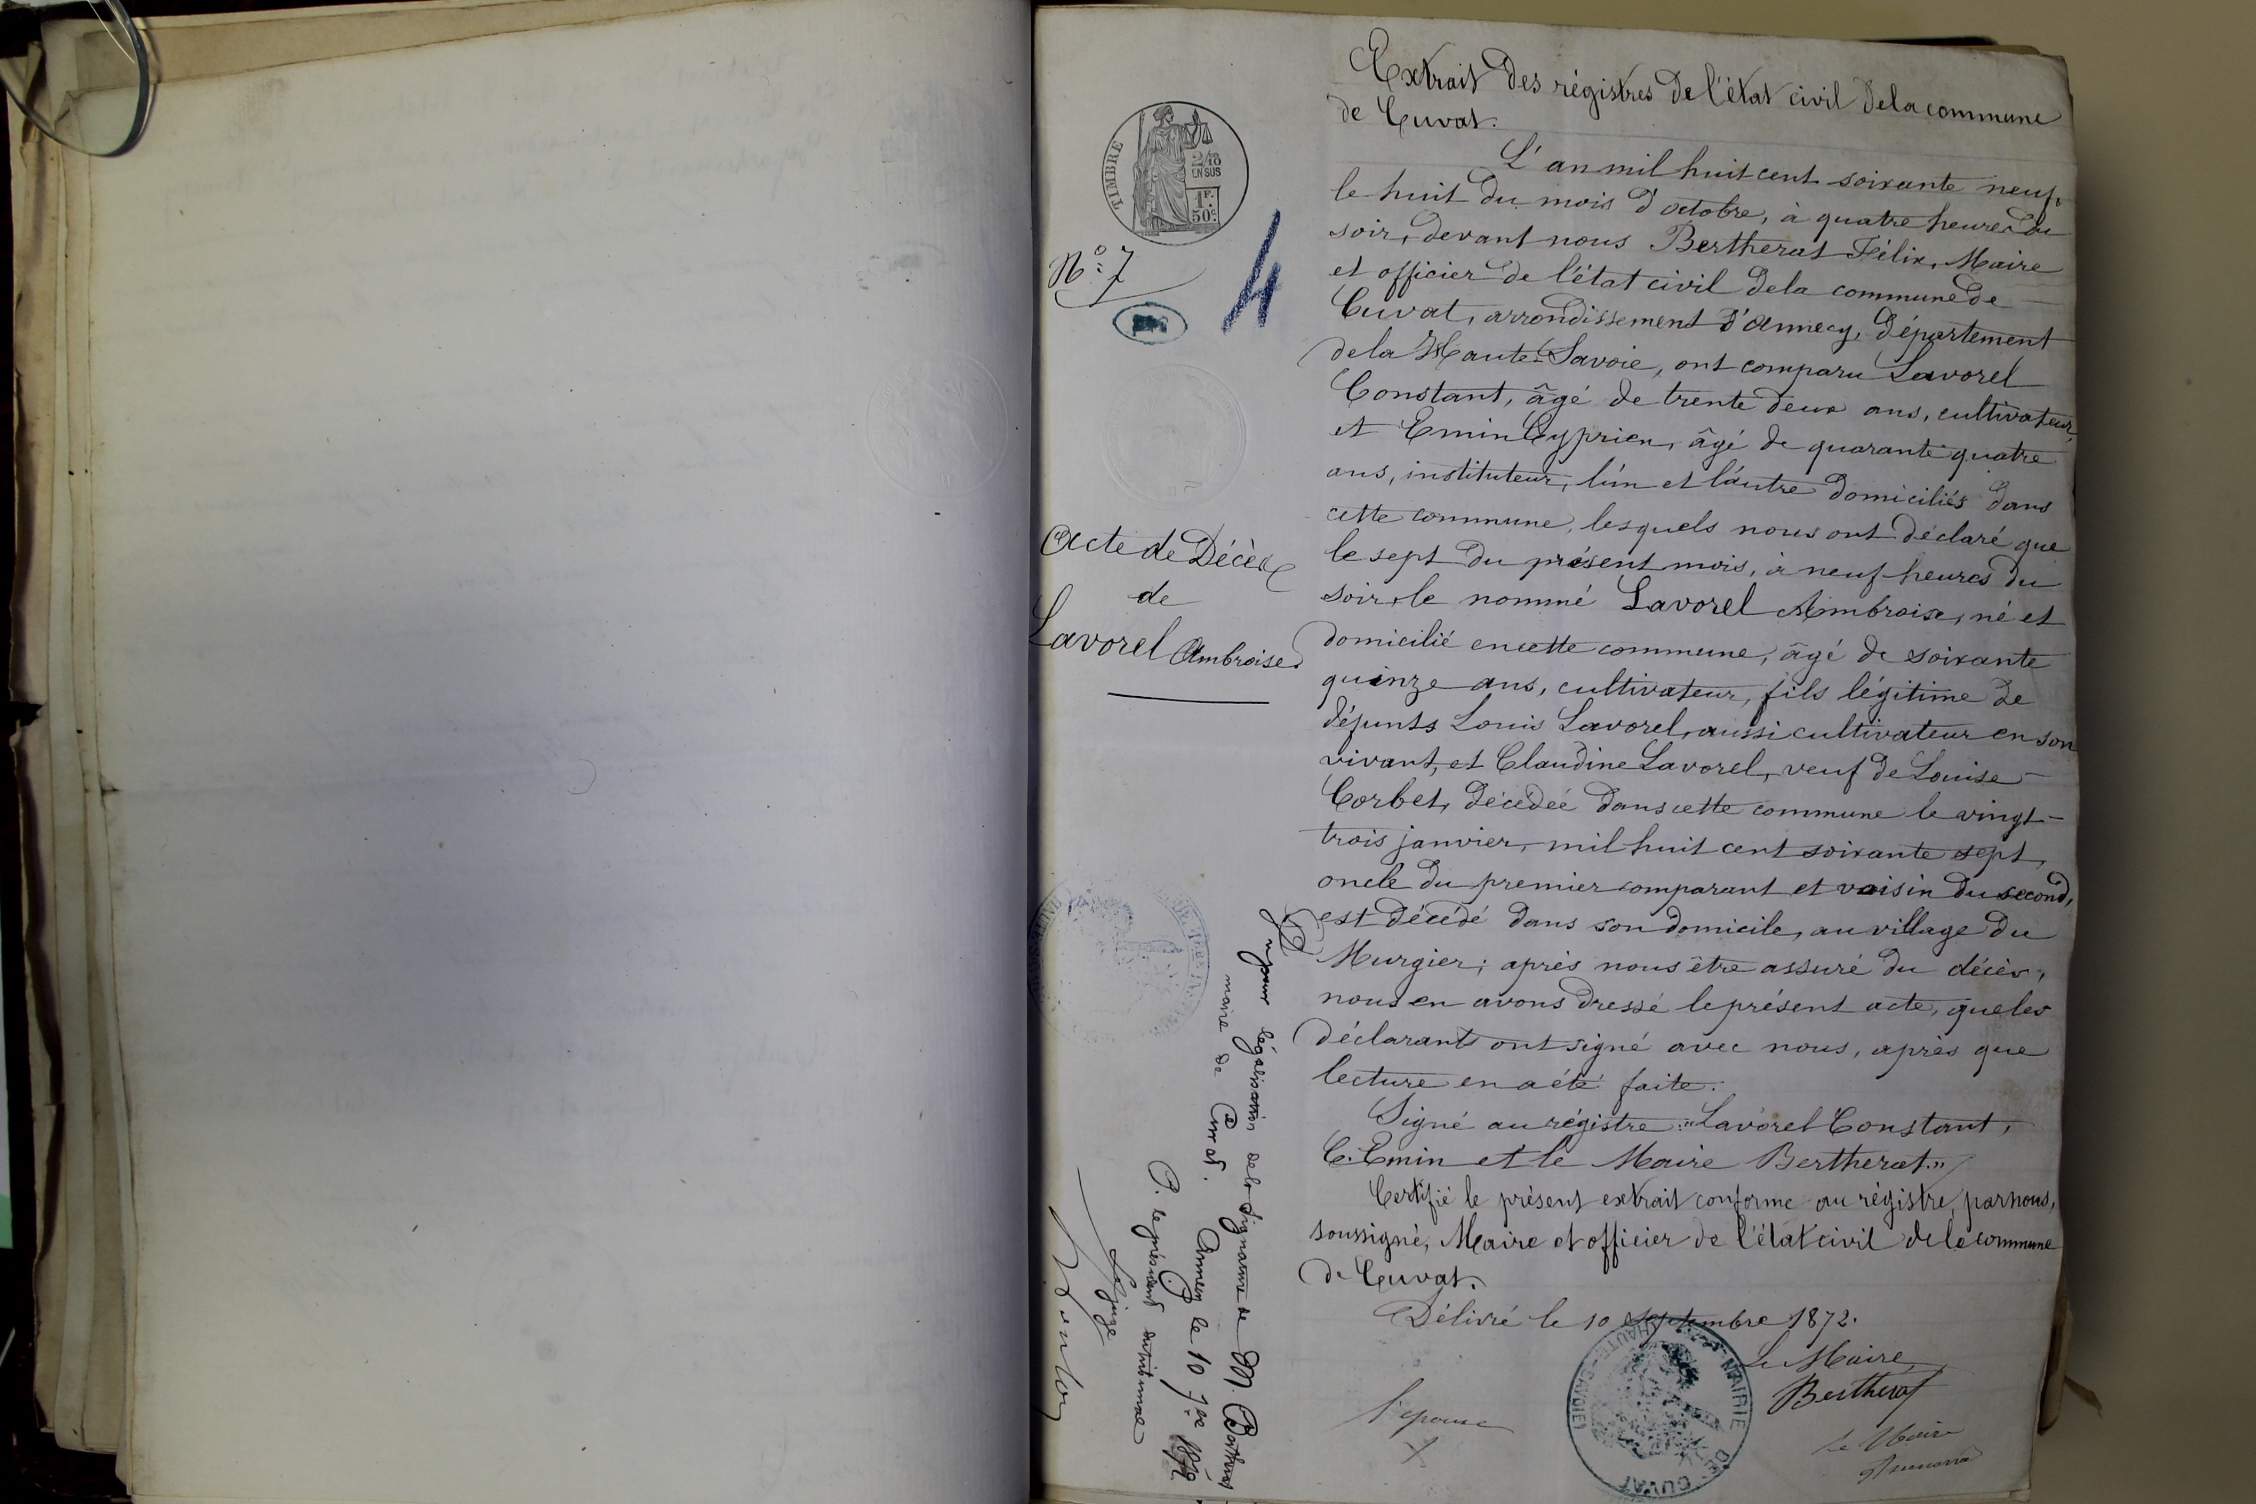 Extrait des régistres de l'état civil de la commune
de Cuvat.
L'an mil huit cent soixante neuf,
le huit du mois d'octobre, à quatre heures du
soir, devant nous Bertherat Félix, Maire
et officier de l'état civil de la commune de
Cuvat, arrondissement d'Annecy, département
de la Haute-Savoie, ont comparu Lavorel
Constant, âgé de trente deux ans, cultivateur,
et Emin Cyprien, âgé de quarante quatre
ans, instituteur, l'un et l'autre domiciliés dans
cette commune, lesquels nous ont déclaré que
le sept du présent mois, à neuf heures du
soir, le nommé Lavorel Ambroise, né et
domicilié en cette commune, âgé de soixante
quinze ans, cultivateur, fils légitime de
défunts Louis Lavorel, aussi cultivateur en son
vivant, et Claudine Lavorel, veuf de Louise
Corbet, décédée dans cette commune le vingt-
trois janvier, mil huit cent soixante sept,
oncle du premier comparant et voisin du second,
est décédé dans son domicile, au village du
Murgier; après nous être assuré du décès,
nous en avons dressé le présent acte, que les
déclarants ont signé avec nous, après que
lecture en a été faite.
Signé au régistre : "Lavorel Constant,
C. Emin et le Maire Bertherat."
Certifié le présent extrait conforme au régistre, par nous,
soussigné, Maire et officier de l'état civil de la commune
de Cuvat.
Délivré le 10 septembre 1872.
Le Maire
Bertherat
le Maire
l'épouse
X
MAIRIE DE CUVAT
(HAUTE-SAVOIE)
TIMBRE
2/10
EN SUS
1F.
50c.
N° 7
4
Acte de Décès
de
Lavorel Ambroise.
Vu pour légalisation de la signature de M. Bertherat
maire de Cuvat.
Annecy le 10 7bre 1872
P. le président du tribunal
Le juge